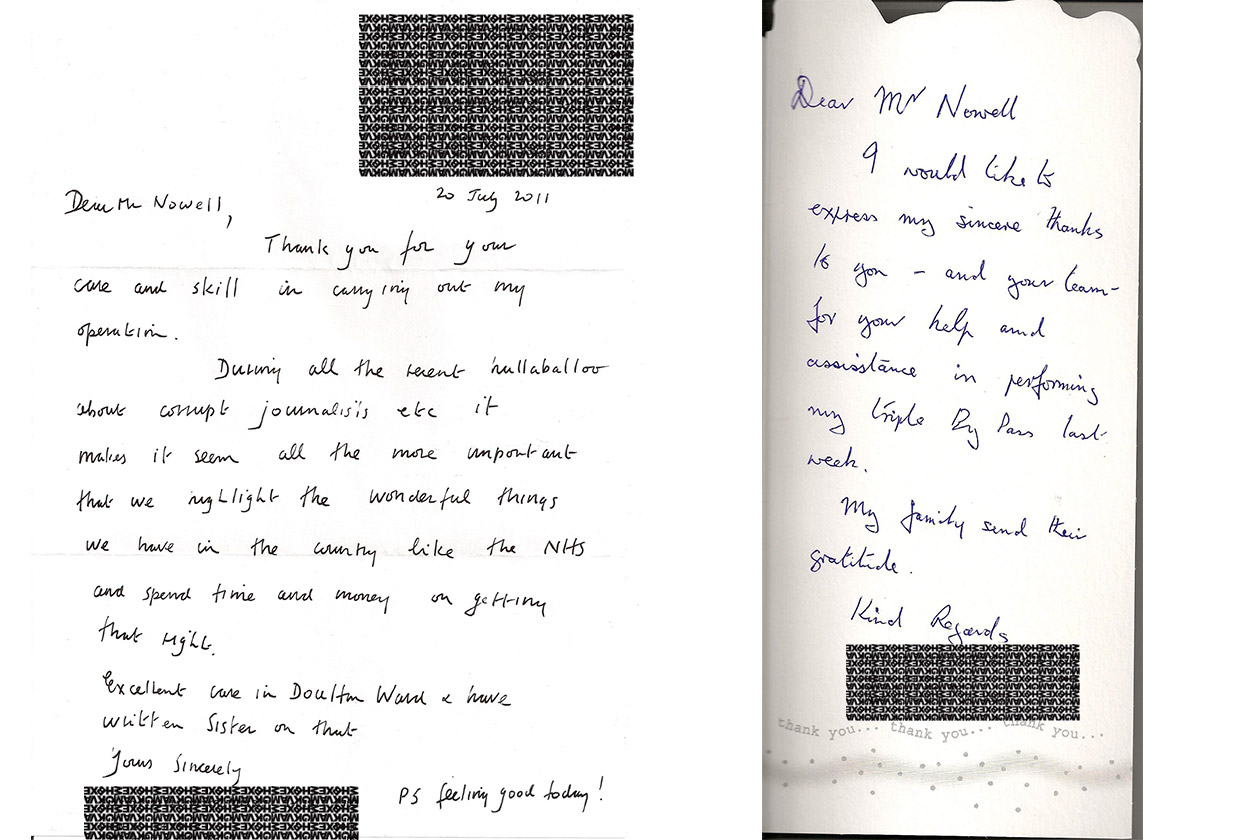 20 July 2011
Dear Mr Nowell,
Thank you for your
care and skill in carrying out my
operation.
During all the recent hullaballoo
about corrupt journalists etc it
makes it seem all the more important
that we highlight the wonderful things
we have in the country like the NHS
and spend time and money on getting
that right.
Excellent care in Doulton Ward & have
written Sister on that
Yours Sincerely
PS feeling good today!
Dear Mr Nowell
I would like to
express my sincere thanks
to you - and your team-
for your help and
assisstance in performing
my triple By Pass last
week.
My family send their
gratitude.
Kind Regards
thank you... thank you... thank you...